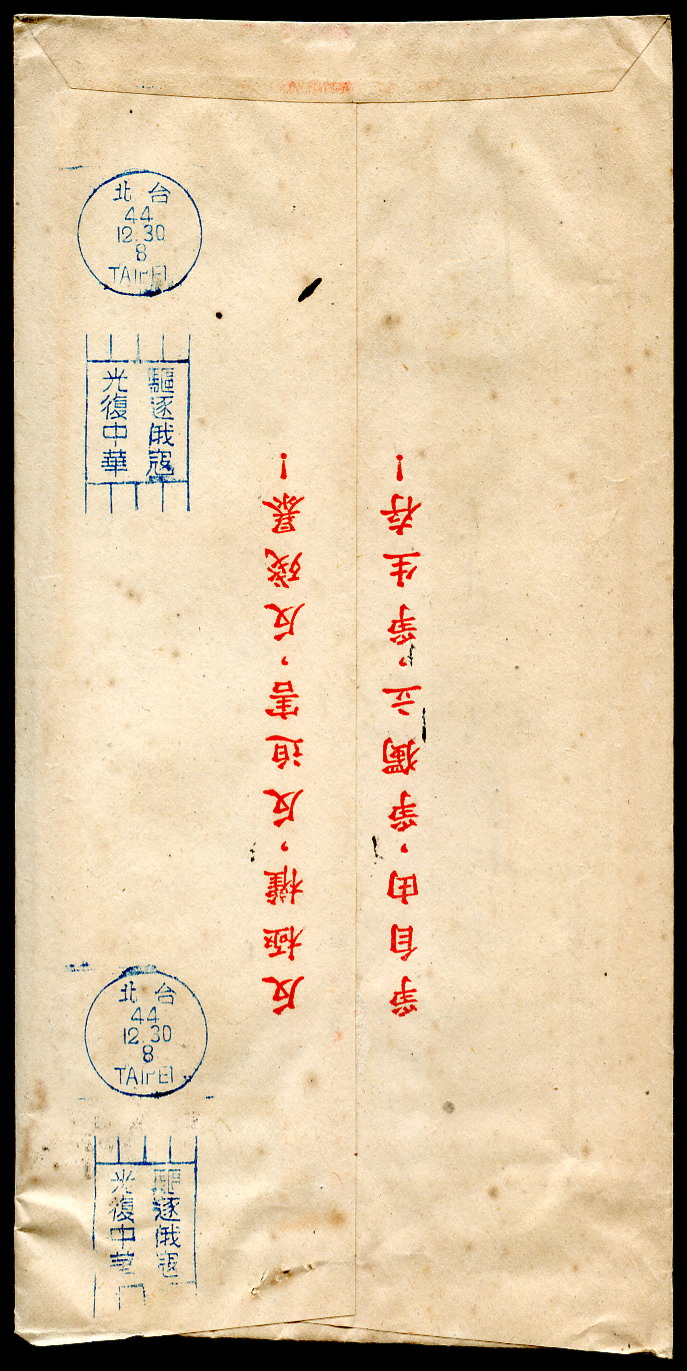 台北
44
12.30
8
TAIPEI
驅逐俄寇
光復中華
反極權,反迫害,反殘暴!
爭自由,爭獨立,爭生存!
台北
44
12.30
8
TAIPEI
驅逐俄寇
光復中華